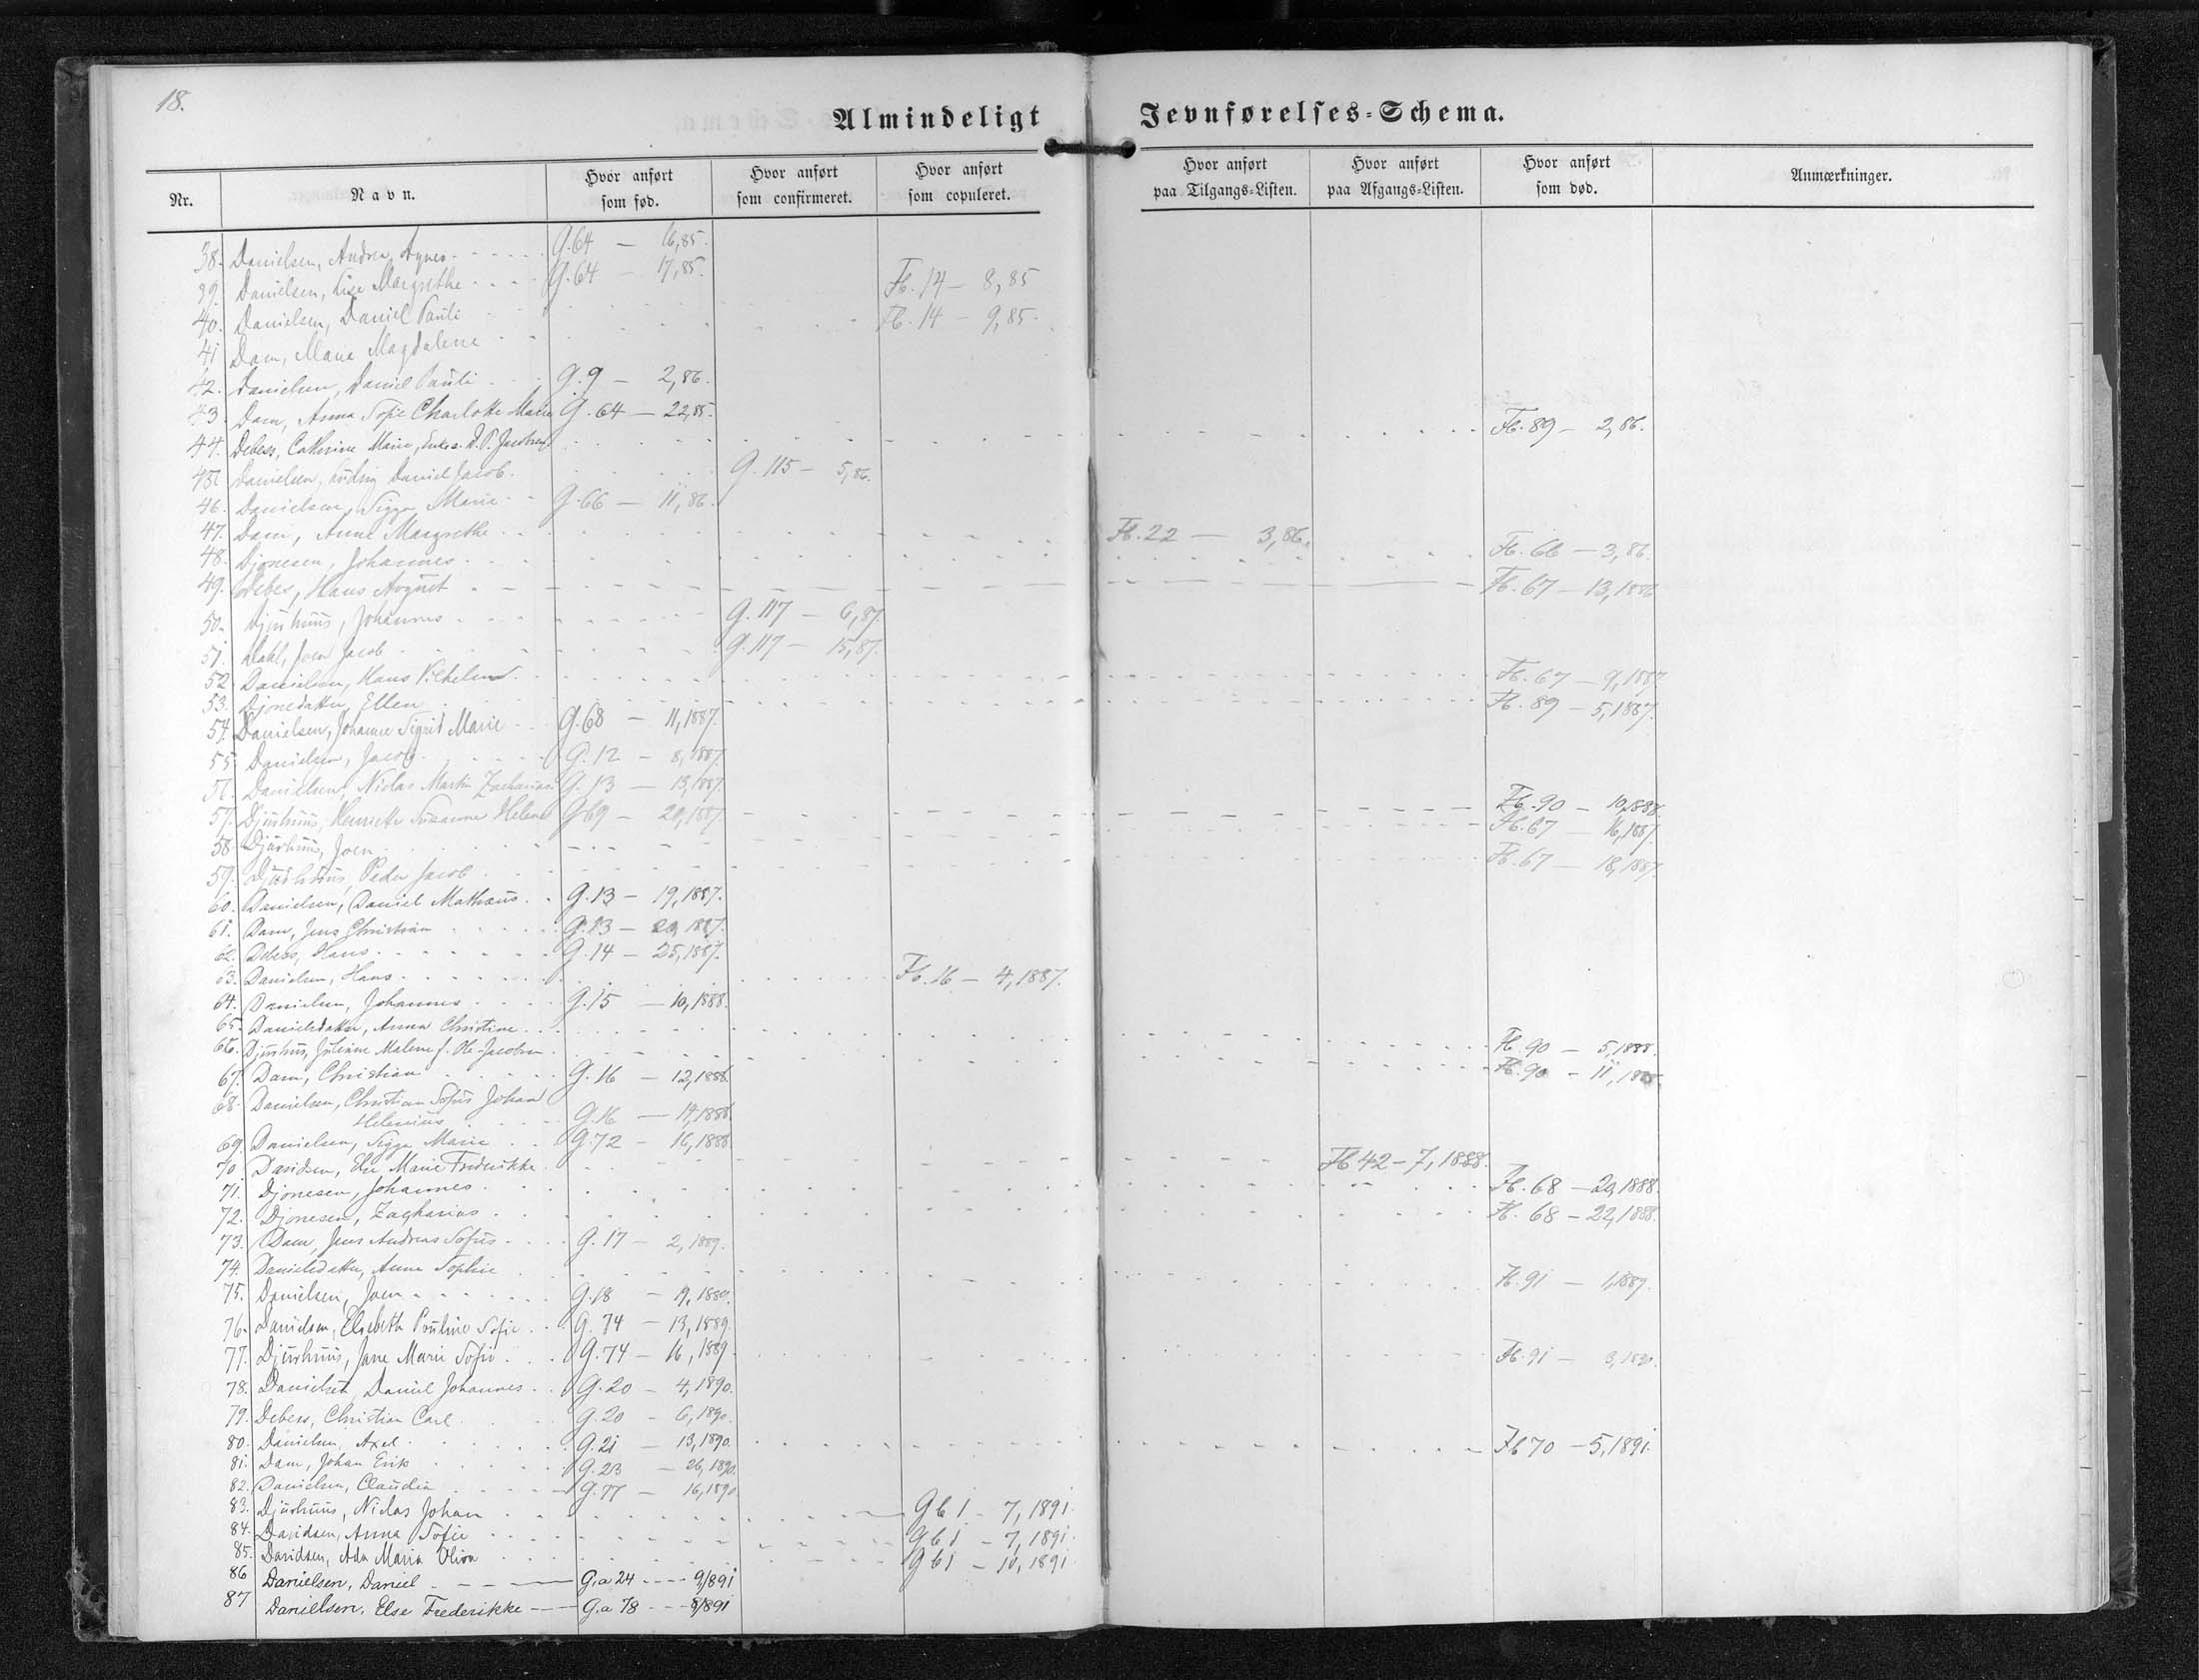 18.
Almindeligt Jevnførelses-Schema.
Nr. Navn. Hvor anført som fød. Hvor anført som confirmeret. Hvor anført som copuleret. Hvor anført paa Tilgangs-Listen. Hvor anført paa Afgangs-Listen. Hvor anført som død. Anmærkninger.
38. Danielsen, Andrea Agnes G.64 — 16,85.
39. Danielsen, Lise Margrethe G.64 — 17,85.
40. Danielsen, Daniel Pauli Fb.14 — 8,85
41 Dam, Maria Magdalene Fb.14 — 9,85.
42. Danielsen, Daniel Pauli G.9 — 2,86.
43. Dam, Anna Sofie Charlotte Marie G.64 — 22,85.
44. Debess, Cathrine Marie, Enke e. D.P. Jacobsen Fb.89 — 2,86.
45. Danielsen, Daniel Jacob. G.115 — 5,86.
46. Danielsen, Sigga Maria G.66 — 11,86.
47. Dam, Anne Margrethe Fb.22 — 3,86.
48. Djonesen, Johannes Fb.66 — 3,86.
49. Debes, Hans August Fb.67 — 13,1886
50. Djurhuus, Johannes G.117 — 6,87.
51. Dahl, Joen Jacob G.117 — 15,87.
52. Danielsen, Hans Vilhelm Fb.67 — 9,1887
53. Djonedatter, Ellen Fb.89 — 5,1887.
54. Danielsen, Johanne Sigrid Marie G.68 — 11,1887.
55. Danielsen, Jacob G.12 — 8,1887.
56. Danielsen, Niclas Martin Zacharias G.13 — 13,1887.
57. Djurhuus, Henriette Susanne Helene G69 — 20,1887. Fb.90 — 10,1888.
58. Djurhuus, Joen Fb.67 — 16,1887.
59. Djurhuus Peder Jacob Fb.67 — 18,1887.
60. Danielsen, Daniel Mathæus G.13 — 19,1887.
61. Dam, Jens Christian G.13 — 20,1887.
62. Debess, Hans G.14 — 25,1887.
63. Danielsen, Hans Fb.16 — 4,1887.
64. Danielsen, Johannes G.15 — 10,1888.
65. Danielsdatter, Anna Christine Fb.90 — 5,1888.
66. Djurhuus, Juliane Malene f. Ole Jacobsen Fb.90 — 11,1888.
67. Dam, Christian G.16 — 12,1888.
68. Danielsen, Christian Sofus Johan
Helenius G.16 — 14,1888.
69. Danielsen, Sigga Marie G.72 — 16,1888.
70 Davidsen, Else Marie Frederikke Fb 42 — 7,1888.
71. Djonesen, Johannes Fb.68 — 20,1888.
72. Djonesen, Zacharias Fb.68 — 22,1888.
73. Dam, Jens Andreas Sofus G.17 — 2,1889.
74. Danielsdatter, Anne Sophie Fb.91 — 1,1889.
75. Danielsen, Joen G.18 — 19,1889.
76. Danielsen, Elsebeth Pouline Sofie G.74 — 13,1889.
77. Djurhuus, Jane Marie Sofie G.74 — 16,1889. Fb.91 — 3,1890.
78. Danielsen, Daniel Johannes G.20 — 4,1890.
79. Debess, Christian Carl G.20 — 6,1890.
80. Danielsen, Axel G.21 — 13,1890. Fb 70 — 5,1891.
81. Dam, Johan Erik G.23 — 26,1890.
82. Danielsen, Claudia G.77 — 16,1890
83. Djurhuus, Niclas Johan Gb 1 — 7,1891.
84. Davidsen, Anna Sofie Gb 1 — 7,1891.
85. Davidsen, Ada Maria Olivia Gb 1 — 10,1891.
86 Danielsen, Daniel G.a 24 — 9/891
87 Danielsen, Else Frederikke G.a 78 — 8/891